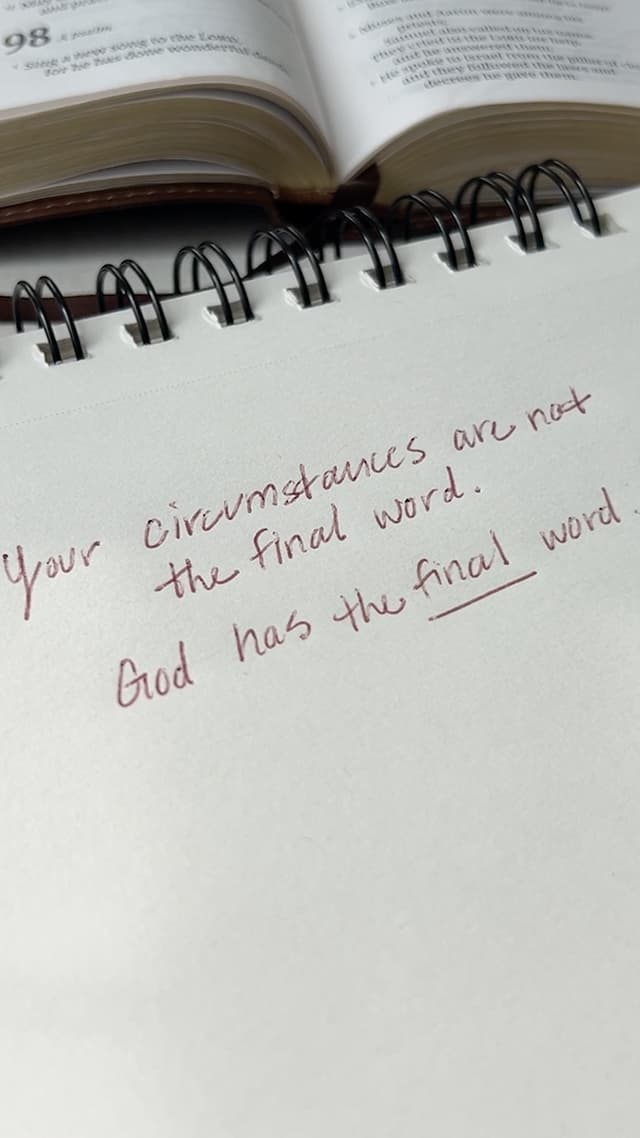 98 A psalm.
Sing a new song to the Lord,
for he has done wonderful deeds.
Moses and Aaron were among his
priests;
Samuel also called on his name.
They cried to the Lord for help,
and he answered them.
He spoke to Israel from the pillar of
and they followed the laws and
decrees he gave them.
Your circumstances are not
the final word.
God has the final word.